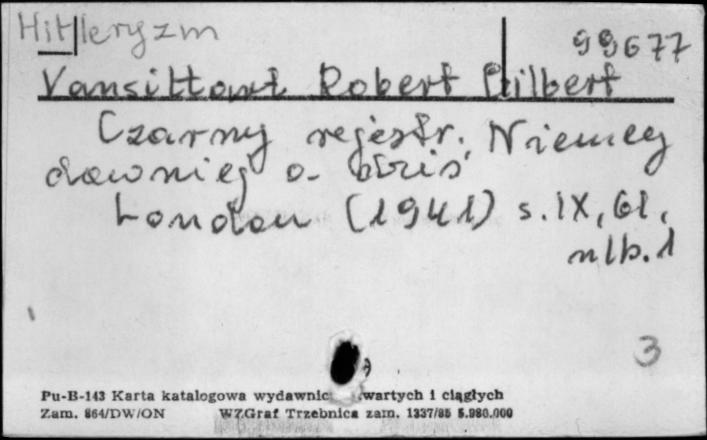 Hitleryzm
99677
Vansittart Robert Gilbert
Czarny rejestr. Niemcy
dawniej a dziś
London (1941) s. IX, 61,
nlb. 1
3
Pu-B-143 Karta katalogowa wydawnic wartych i ciągłych
Zam. 864/DW/ON WZGraf Trzebnica zam. 1337/85 5.980.000